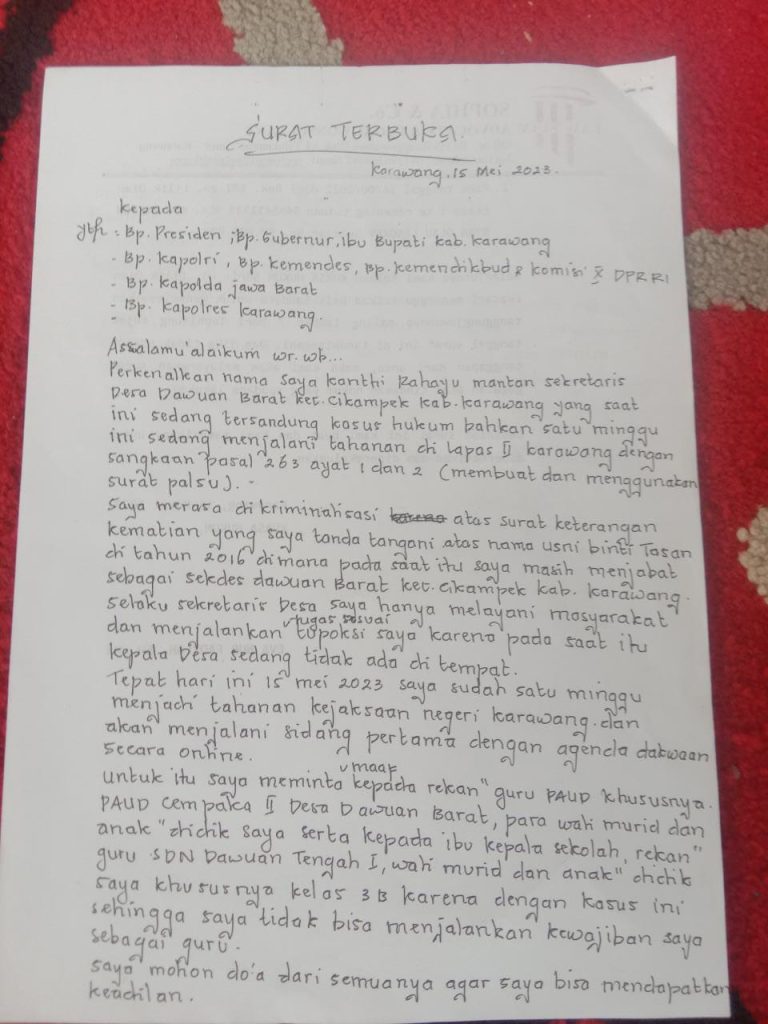 SURAT TERBUKA.
Karawang, 15 Mei 2023.
Kepada
yth : Bp. Presiden, Bp. Gubernur, ibu Bupati kab. karawang
- Bp. kapolri, Bp. kemendes, Bp. kemendikbud & komisi X DPR RI
- Bp. Kapolda jawa Barat
- Bp. kapolres karawang.
Assalamu'alaikum wr. wb...
Perkenalkan nama saya kanthi Rahayu mantan sekretaris
Desa Dawuan Barat kec. cikampek kab. karawang yang saat
ini sedang tersandung kasus hukum bahkan satu minggu
ini sedang menjalani tahanan di lapas II karawang dengan
sangkaan pasal 263 ayat 1 dan 2 (membuat dan menggunakan
surat palsu). -
Saya merasa di kriminalisasi karena atas surat keterangan
kematian yang saya tanda tangani atas nama usni binti Tasan
di tahun 2016 dimana pada saat itu saya masih menjabat
sebagai sekdes dawuan Barat kec. cikampek kab. karawang.
Selaku sekretaris Desa saya hanya melayani masyarakat
dan menjalankan tugas sesuai tupoksi saya karena pada saat itu
kepala Desa sedang tidak ada di tempat.
Tepat hari ini 15 mei 2023 saya sudah satu minggu
menjadi tahanan kejaksaan negeri karawang. dan
akan menjalani sidang pertama dengan agenda dakwaan
secara online.
untuk itu saya meminta maaf kepada rekan" guru PAUD khususnya.
PAUD Cempaka II Desa Dawuan Barat, para wali murid dan
anak" didik saya serta kepada ibu kepala sekolah, rekan"
guru SDN Dawuan Tengah I, wali murid dan anak" didik
saya khususnya kelas 3B karena dengan kasus ini
sehingga saya tidak bisa menjalankan kewajiban saya
sebagai guru.
saya mohon do'a dari semuanya agar saya bisa mendapatkan
keadilan.